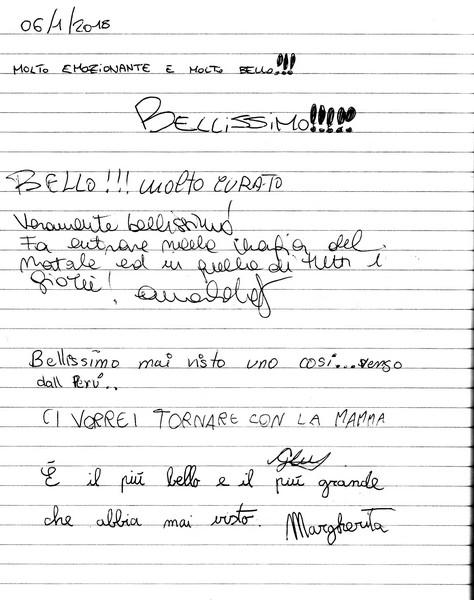 06/1/2018
MOLTO EMOZIONANTE E MOLTO BELLO!!!
BELLISSIMO!!!!!
BELLO!!! MOLTO CURATO
Veramente bellissimo!
Fa entrare nella magia del
Natale ed in quella di tutti i
giorni!
Bellissimo mai visto uno così... vengo
dall Perú..
CI VORREI TORNARE CON LA MAMMA
È il piú bello e il piú grande
che abbia mai visto. Margherita